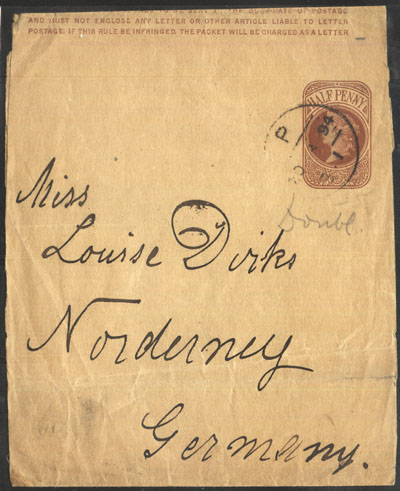 AND MUST NOT ENCLOSE ANY LETTER OR OTHER ARTICLE LIABLE TO LETTER
POSTAGE. IF THIS RULE BE INFRINGED, THE PACKET WILL BE CHARGED AS A LETTER
HALF PENNY
P
94
Miss
Louise Dirks
Norderney
Germany.